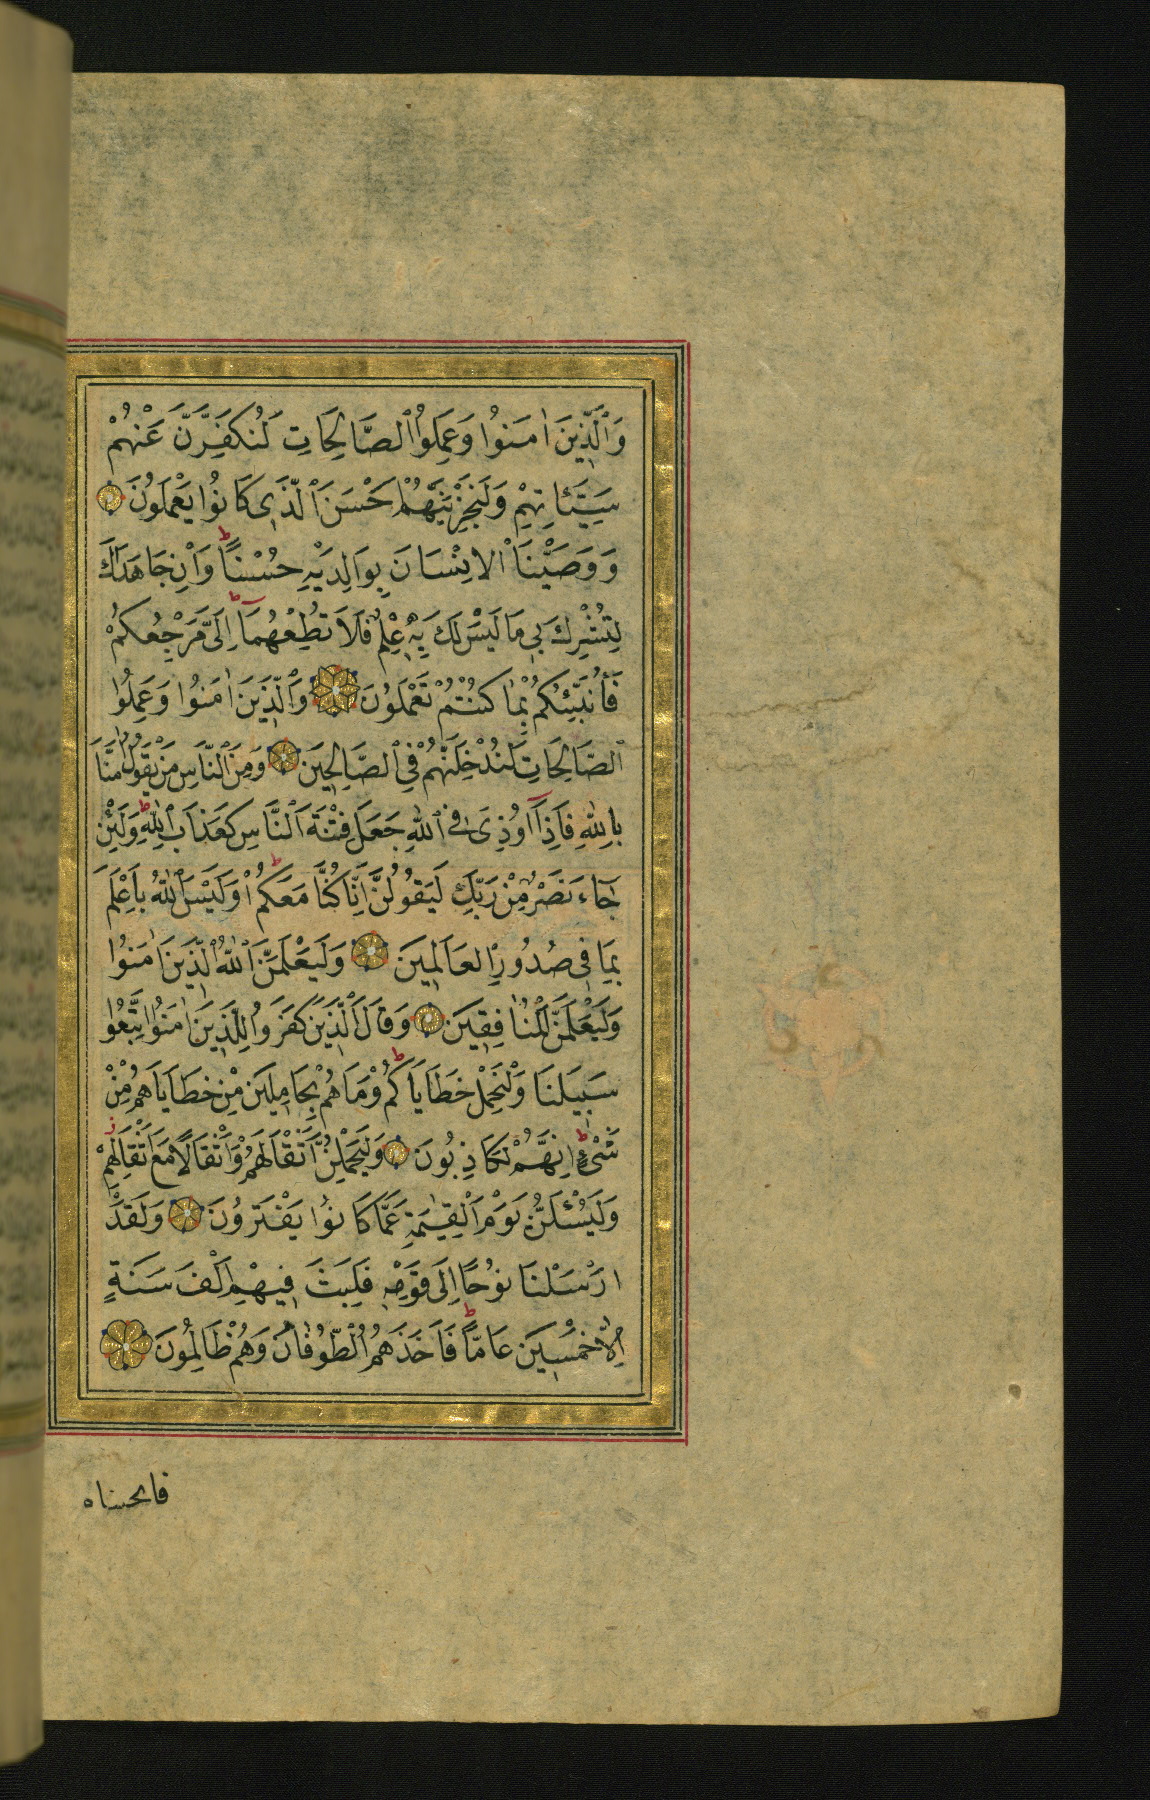 وَالَّذِينَ اٰمَنُوا وَعَمِلُوا الصَّالِحَاتِ لَنُكَفِّرَنَّ عَنْهُمْ
سَيِّئَاتِهِمْ وَلَنَجْزِيَنَّهُمْ اَحْسَنَ الَّذِى كَانُوا يَعْمَلُونَ
وَوَصَّيْنَا الْاِنْسَانَ بِوَالِدَيْهِ حُسْنًا ط وَاِنْ جَاهَدَاكَ
لِتُشْرِكَ بِى مَا لَيْسَ لَكَ بِهٖ عِلْمٌ فَلَا تُطِعْهُمَا ط اِلَىَّ مَرْجِعُكُمْ
فَاُنَبِّئُكُمْ بِمَا كُنْتُمْ تَعْمَلُونَ وَالَّذِينَ اٰمَنُوا وَعَمِلُوا
الصَّالِحَاتِ لَنُدْخِلَنَّهُمْ فِى الصَّالِحِينَ وَمِنَ النَّاسِ مَنْ يَقُولُ اٰمَنَّا
بِاللّٰهِ فَاِذَآ اُوذِىَ فِى اللّٰهِ جَعَلَ فِتْنَةَ النَّاسِ كَعَذَابِ اللّٰهِ ط وَلَئِنْ
جَاءَ نَصْرٌ مِنْ رَبِّكَ لَيَقُولُنَّ اِنَّا كُنَّا مَعَكُمْ ط اَوَلَيْسَ اللّٰهُ بِاَعْلَمَ
بِمَا فِى صُدُورِ الْعَالَمِينَ وَلَيَعْلَمَنَّ اللّٰهُ الَّذِينَ اٰمَنُوا
وَلَيَعْلَمَنَّ الْمُنَافِقِينَ وَقَالَ الَّذِينَ كَفَرُوا لِلَّذِينَ اٰمَنُوا اتَّبِعُوا
سَبِيلَنَا وَلْنَحْمِلْ خَطَايَاكُمْ ط وَمَا هُمْ بِحَامِلِينَ مِنْ خَطَايَاهُمْ مِنْ
شَىْءٍ ط اِنَّهُمْ لَكَاذِبُونَ وَلَيَحْمِلُنَّ اَثْقَالَهُمْ وَاَثْقَالًا مَعَ اَثْقَالِهِمْ ز
وَلَيُسْئَلُنَّ يَوْمَ الْقِيٰمَةِ عَمَّا كَانُوا يَفْتَرُونَ وَلَقَدْ
اَرْسَلْنَا نُوحًا اِلَى قَوْمِهٖ فَلَبِثَ فِيهِمْ اَلْفَ سَنَةٍ
اِلَّا خَمْسِينَ عَامًا ط فَاَخَذَهُمُ الطُّوفَانُ وَهُمْ ظَالِمُونَ
فانجيناه